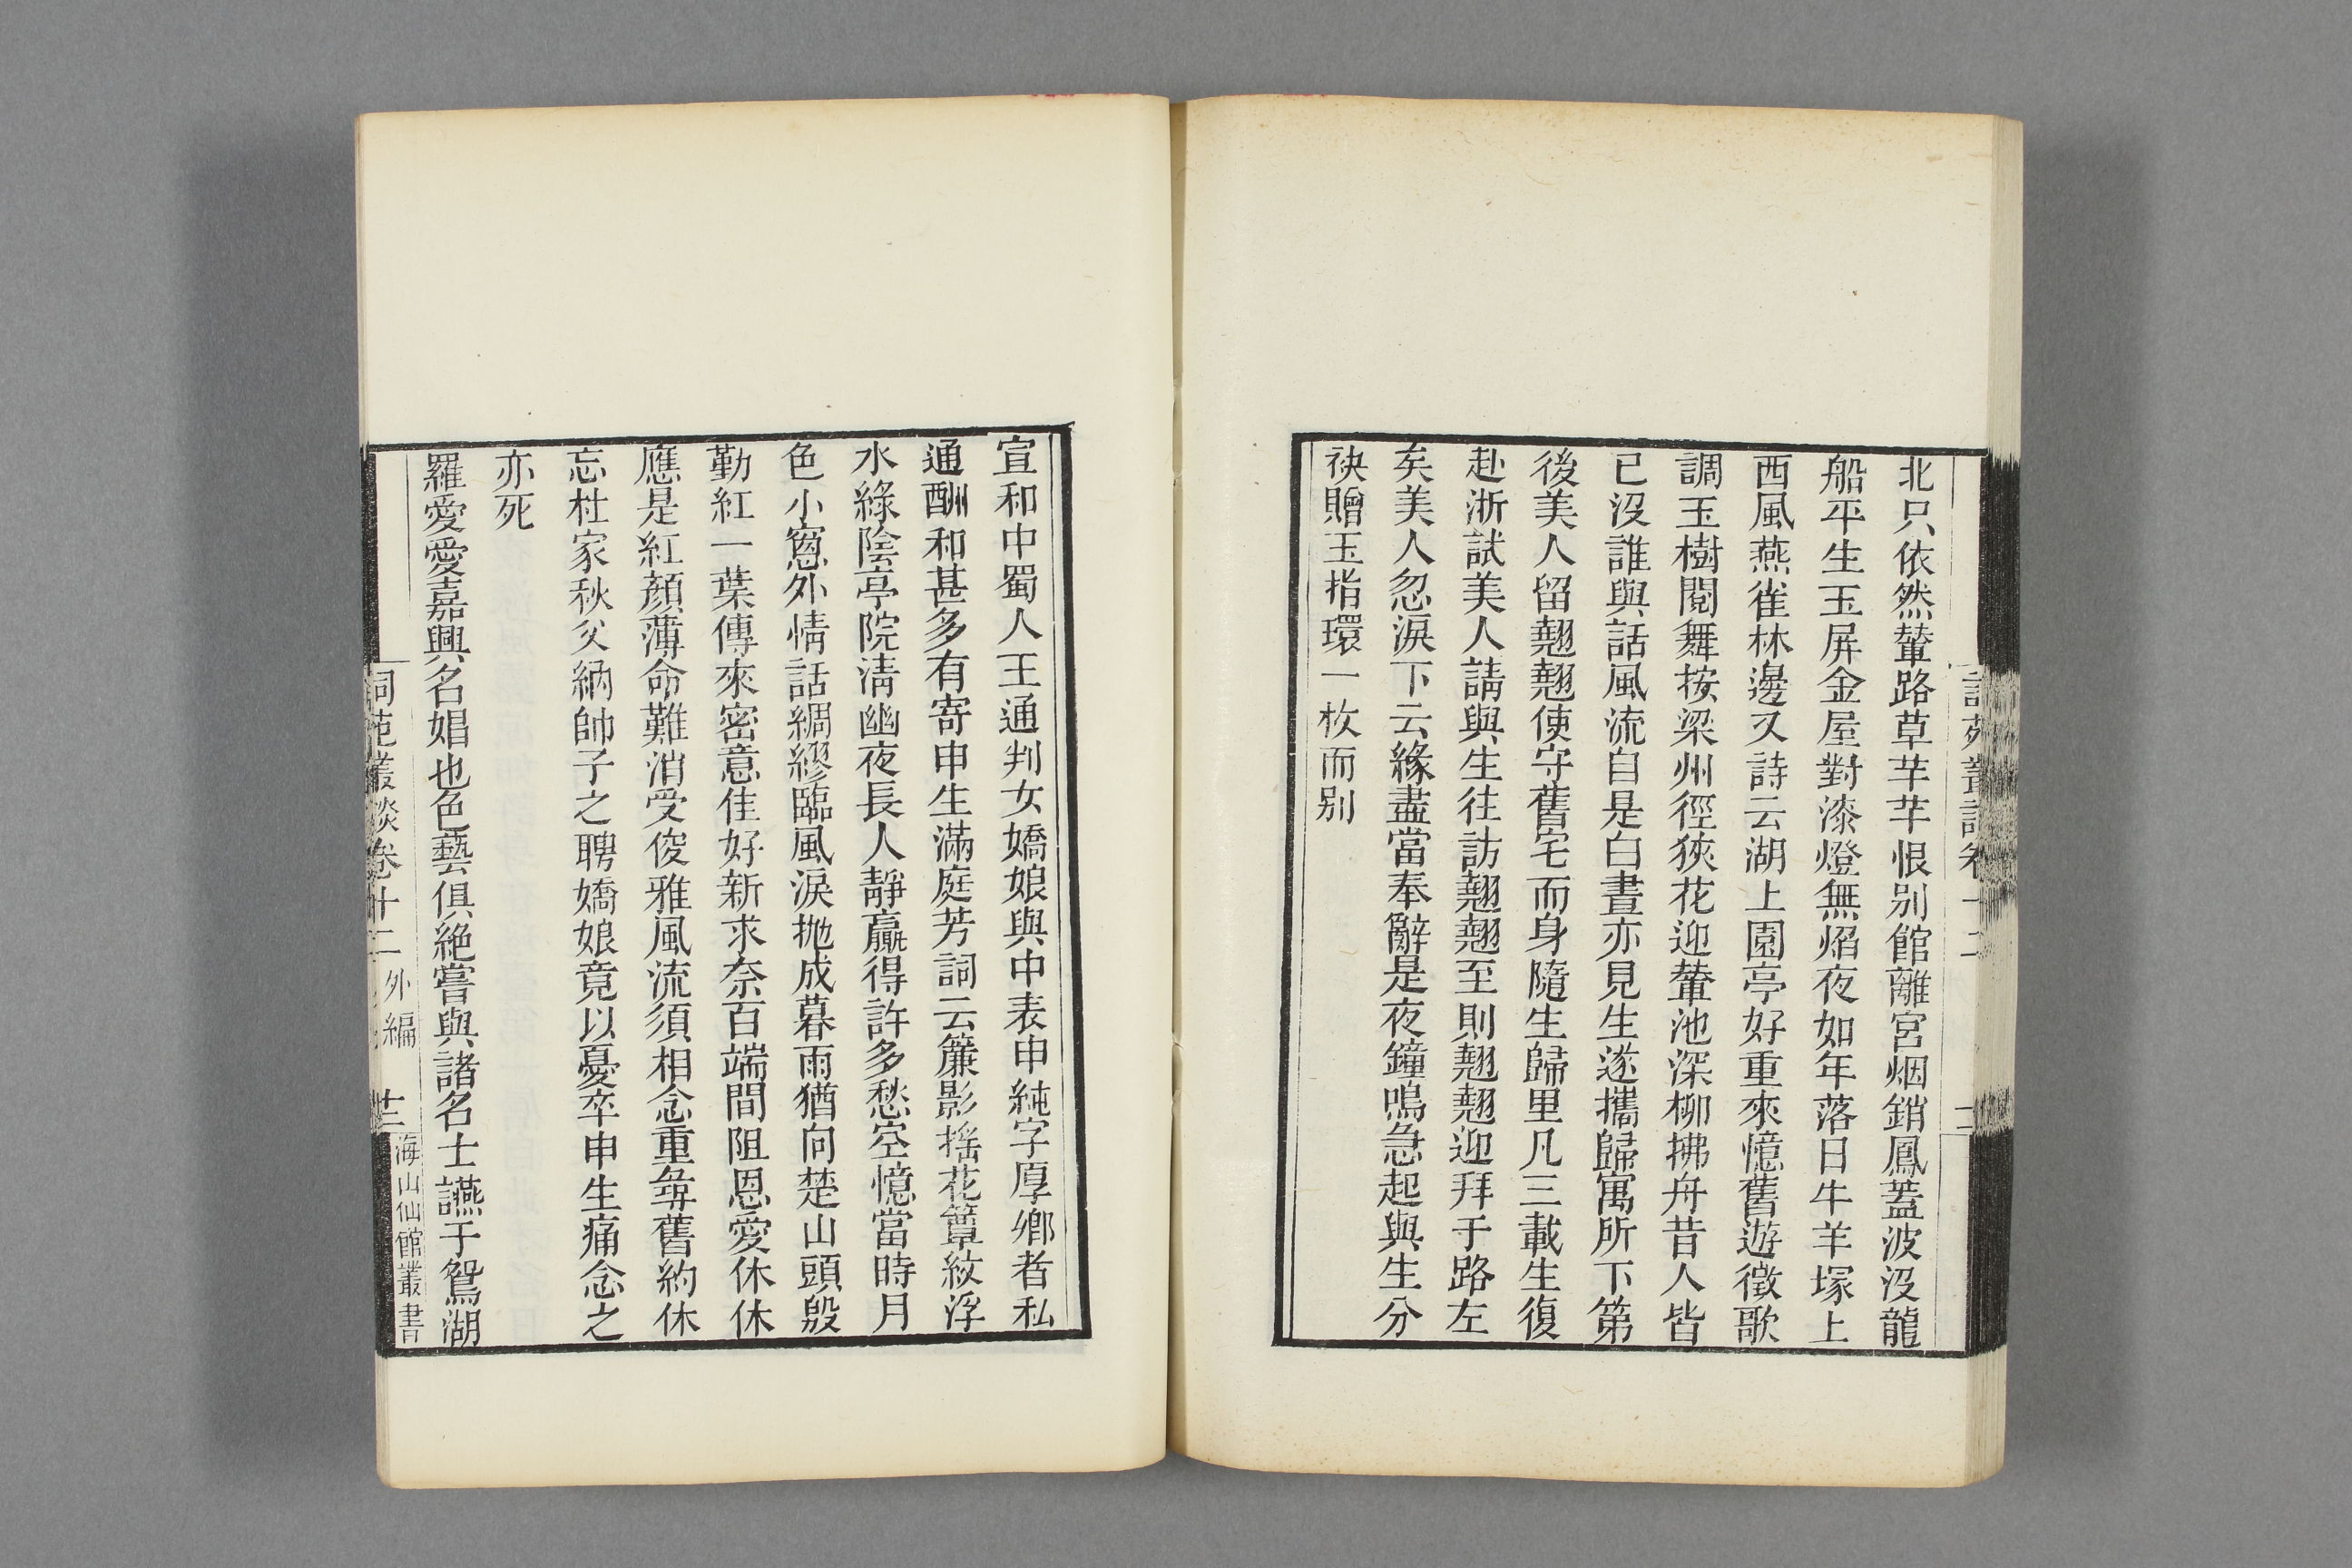 北只依然輦路草芊芊恨别館離宮烟銷鳳蓋波没龍
船平生玉屏金屋對漆燈無熖夜如年落日牛羊塚上
西風燕雀林邊又詩云湖上園亭好重來憶舊遊徵歌
調玉樹閱舞按梁州徑狹花迎輦池深柳拂舟昔人皆
已没誰與話風流自是白晝亦見生遂攜歸寓所下第
後美人留翹翹使守舊宅而身隨生歸里凡三載生復
赴浙試美人請與生往訪翹翹至則翹翹迎拜于路左
矣美人忽淚下云緣盡當奉辭是夜鐘鳴急起與生分
袂贈玉指環一枚而别
宣和中蜀人王通判女嬌娘與中表申純字厚鄉者私
通酬和甚多有寄申生滿庭芳詞云簾影搖花簟紋浮
水綠陰亭院清幽夜長人靜贏得許多愁空憶當時月
色小窻外情話綢繆臨風淚抛成暮雨猶向楚山頭殷
勤紅一葉傳來密意佳好新求奈百端間阻恩愛休休
應是紅顏薄命難消受俊雅風流須相念重尋舊約休
忘杜家秋父納帥子之聘嬌娘竟以憂卒申生痛念之
亦死
羅愛愛嘉興名娼也色藝俱絶嘗與諸名士讌于鴛湖
詞苑叢談卷十二 外編 廿三 海山仙館叢書